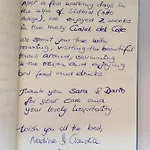 After a few working days in
the area of
we enjoyed 2 weeks
in the lovely Casal del Cole
We spent our time with
relaxing, visiting the beautiful
towns around, swimming
in the ocean and enjoying
best food and drinks.
Thank you Sara & Dario
for your care and
your lovely hospitality
Wish you all the best,
Nadine & Claudia